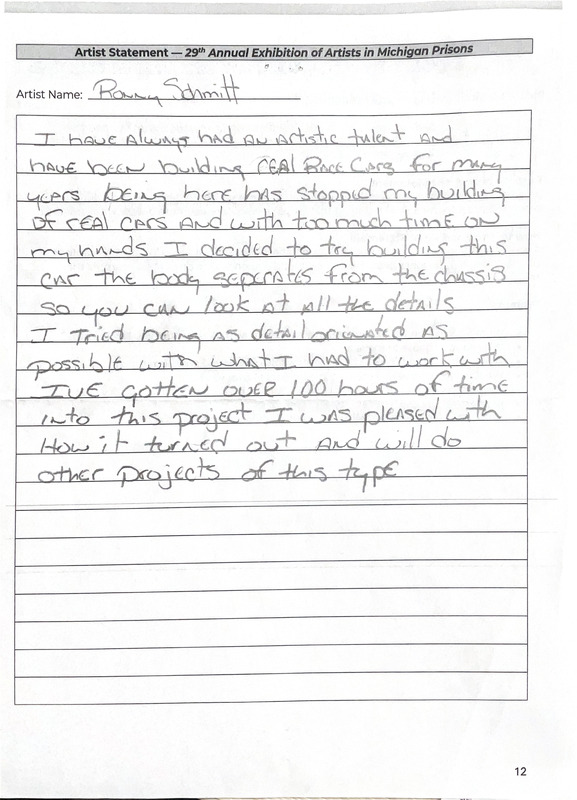 Artist Statement — 29th Annual Exhibition of Artists in Michigan Prisons
Artist Name: Ronny Schmitt
I have always had an artistic talent and
have been building real Race Cars for many
years being here has stopped my building
of real cars and with too much time on
my hands I decided to try building this
car the body seperates from the chassis
so you can look at all the details
I Tried being as detail orionated as
possible with what I had to work with
I've gotten over 100 hours of time
into this project I was pleased with
How it turned out and will do
other projects of this type
12